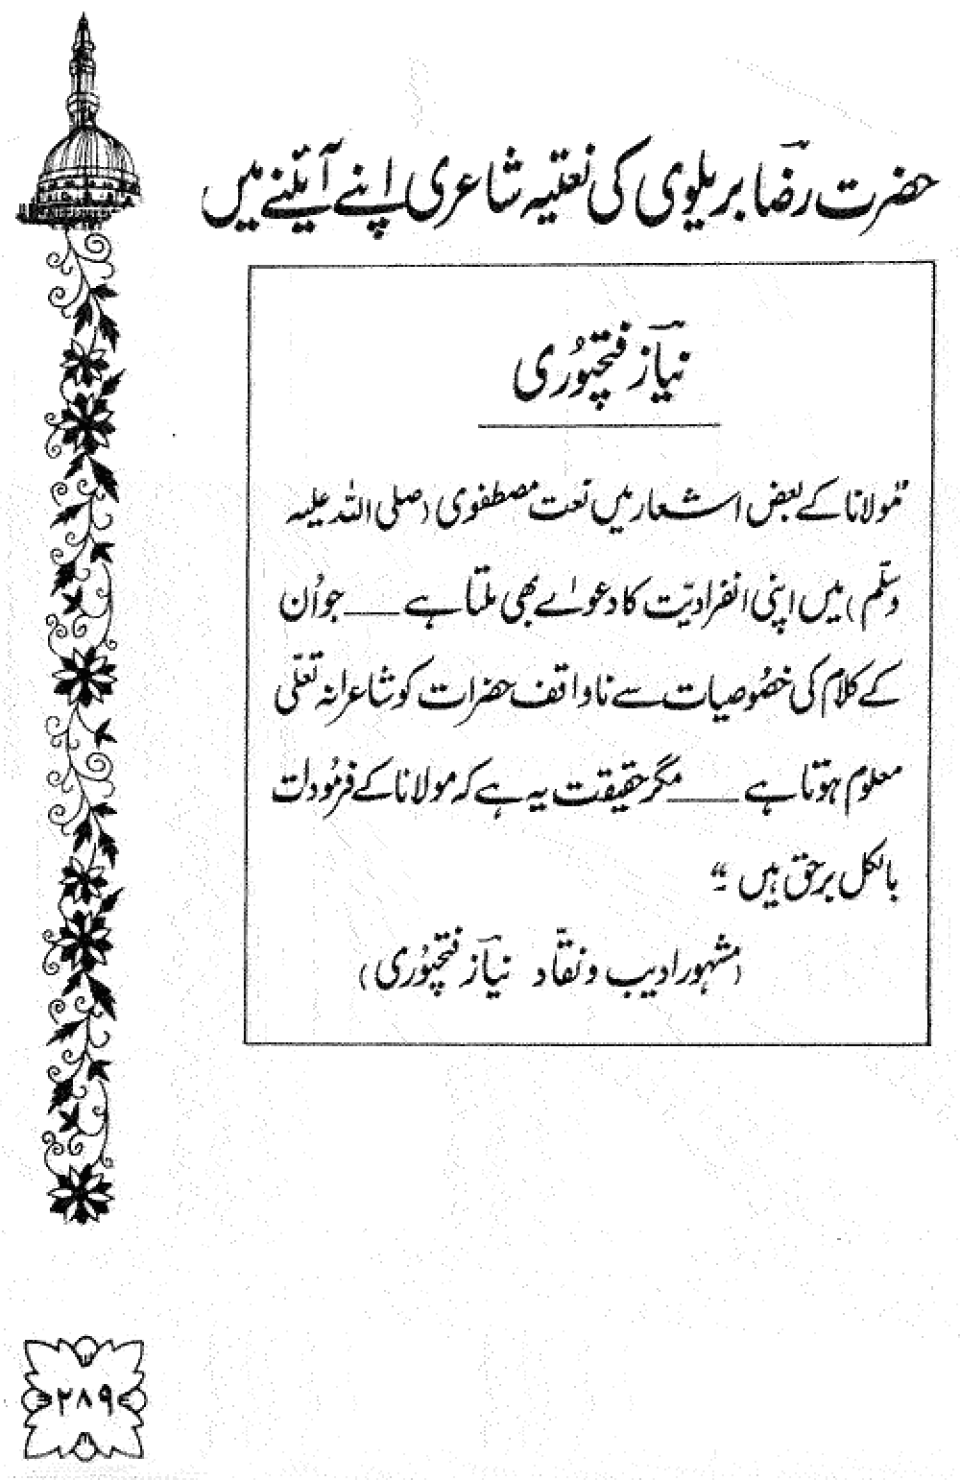 حضرت رضاؔ بریلوی کی نعتیہ شاعری اپنے آئینے میں
نیازؔ فتحپُوری
"مولانا کے بعض اشعار میں نعت مصطفوی (صلی اللہ علیہ
وسلّم) میں اپنی انفرادیّت کا دعواے بھی ملتا ہے ـــــ جو اُن
کے کلام کی خصُوصیات سے ناواقف حضرات کو شاعرانہ تعلّی
معلوم ہوتا ہے ـــــ مگر حقیقت یہ ہے کہ مولانا کے فرمُودات
بالکل برحق ہیں۔"
(مشہور ادیب و نقّاد نیازؔ فتحپُوری)
۲۸۹